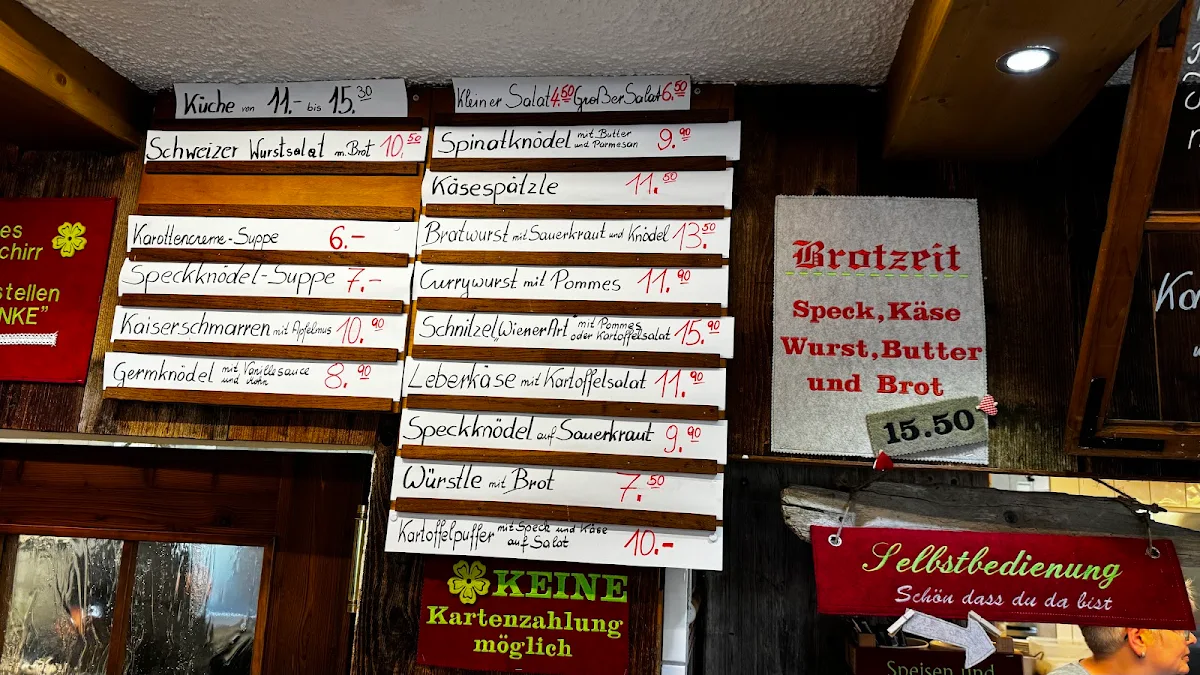 Küche von 11.- bis 15.30
Schweizer Wurstsalat m. Brot 10.50
Karottencreme-Suppe 6.-
Speckknödel-Suppe 7.-
Kaiserschmarren mit Apfelmus 10.90
Germknödel mit Vanillesauce und Mohn 8.90
kleiner Salat 4.50 Großer Salat 6.50
Spinatknödel mit Butter und Parmesan 9.90
Käsespätzle 11.50
Bratwurst mit Sauerkraut und Knödel 13.50
Currywurst mit Pommes 11.90
Schnitzel „Wiener Art" mit Pommes oder Kartoffelsalat 15.90
Leberkäse mit Kartoffelsalat 11.90
Speckknödel auf Sauerkraut 9.90
Würstle mit Brot 7.50
Kartoffelpuffer mit Speck und Käse auf Salat 10.-
KEINE
Kartenzahlung
möglich
Brotzeit
Speck, Käse
Wurst, Butter
und Brot
15.50
Selbstbedienung
Schön dass du da bist
Speisen und